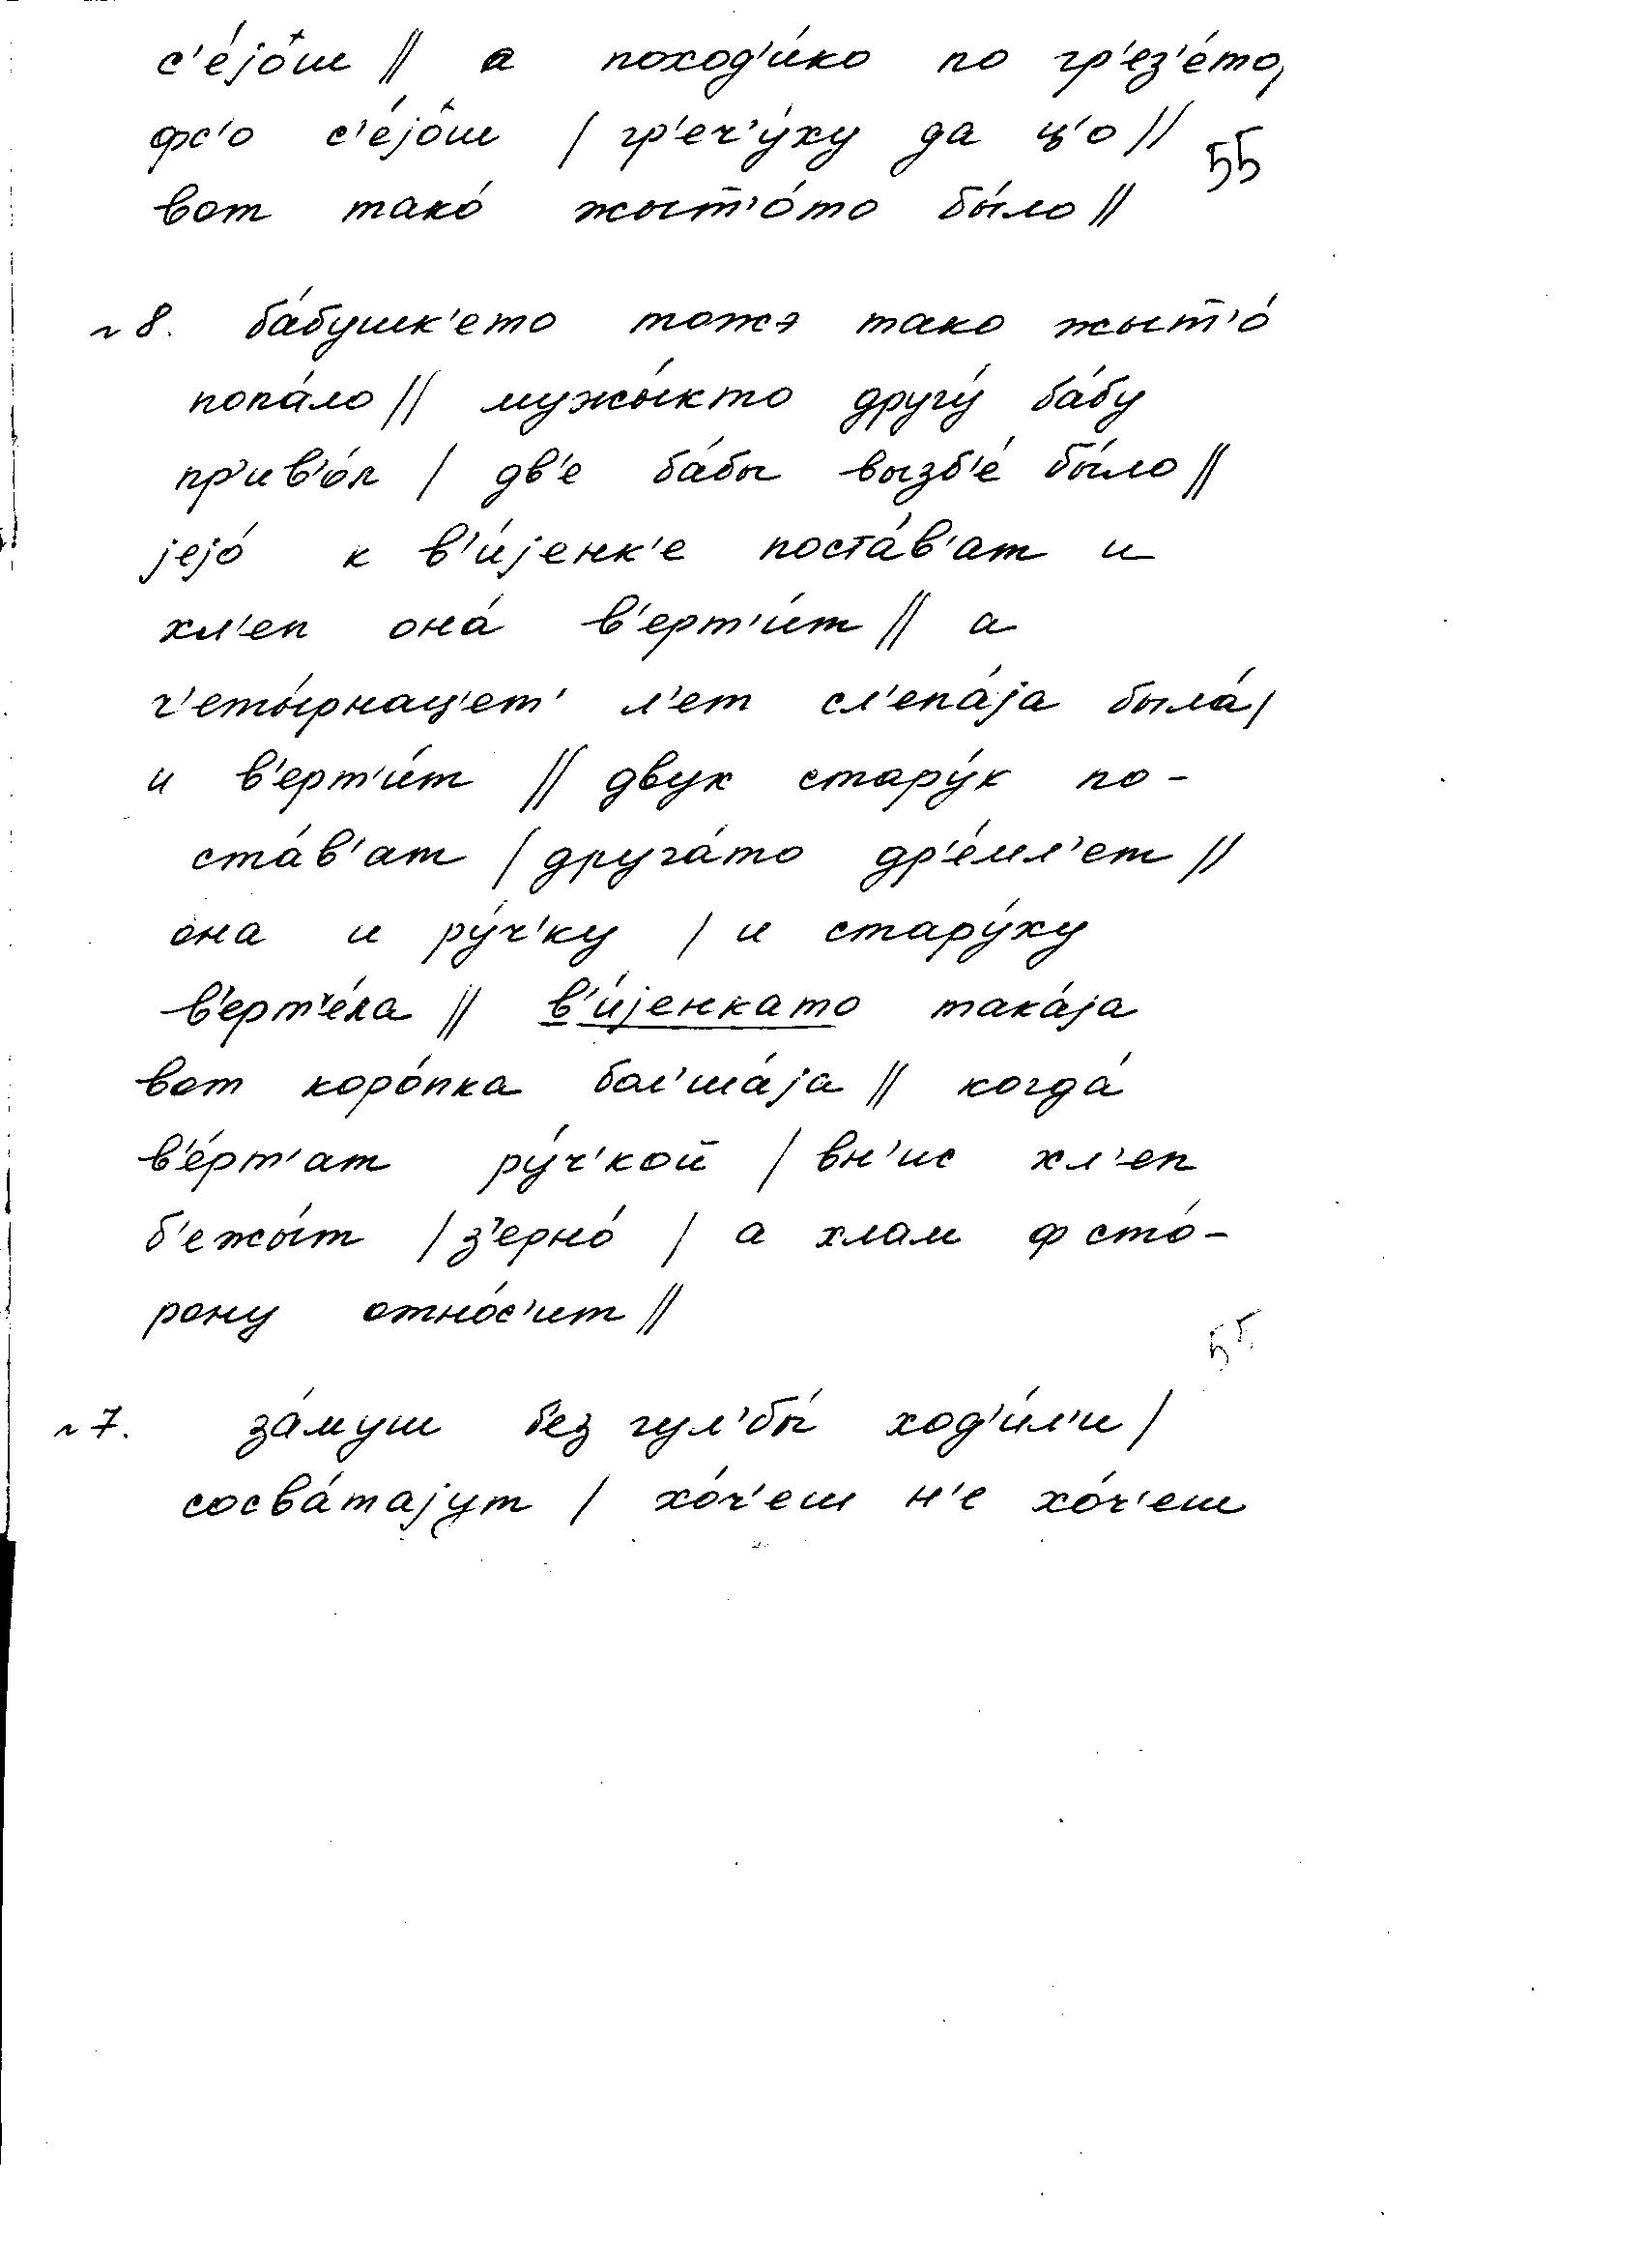 с'е́јо̂ш || а поход'и́ко по гр'ез'е́то,
фс'о с'е́јо̂ш / гр'еч'у́ху да ц'о ||
55
вот тако́ жыт̄'о́то бы́ло ||
~ 8. ба́бушк'ето тожэ тако жыт̄'о́
попа́ло || мужы́кто другу́ ба́бу
пр'ив'о́л / дв'е ба́бы вызб'е́ бы́ло ||
јејо́ к в'и́јенк'е поста́в'ат и
хл'еп она́ в'ерт'и́т || а
ч'еты́рнацет' л'ет сл'епа́ја была́ /
и в'ерт'и́т || двух стару́х по-
ста́в'ат / друга́то др'е́мл'ет ||
она и ру́ч'ку / и стару́ху
в'ерт'е́ла || в'и́јенкато така́ја
вот коро́пка бол'ша́ја || когда́
в'е́рт'ат ру́ч'кой / вн'ис хл'еп
б'ежы́т / з'ерно́ / а хлам ф сто́-
рону отно́с'ит ||
55
~ 7. за́муш б'ез гул'бы́ ход'и́л'и /
сосва́тајут / хо́ч'еш н'е хо́ч'еш